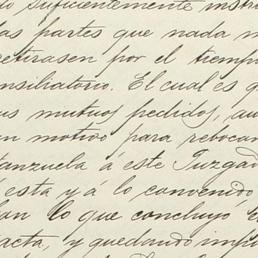 suficientemente instr
las partes que nada m
retirasen por el tiemp
nsiliatorio. El cual es q
us mutuos pedidos, au
un motivo para rebocar
tanzuela á este Juzgad
á esta y á lo convenido,
lan lo que concluyo
acta, y quedando imp